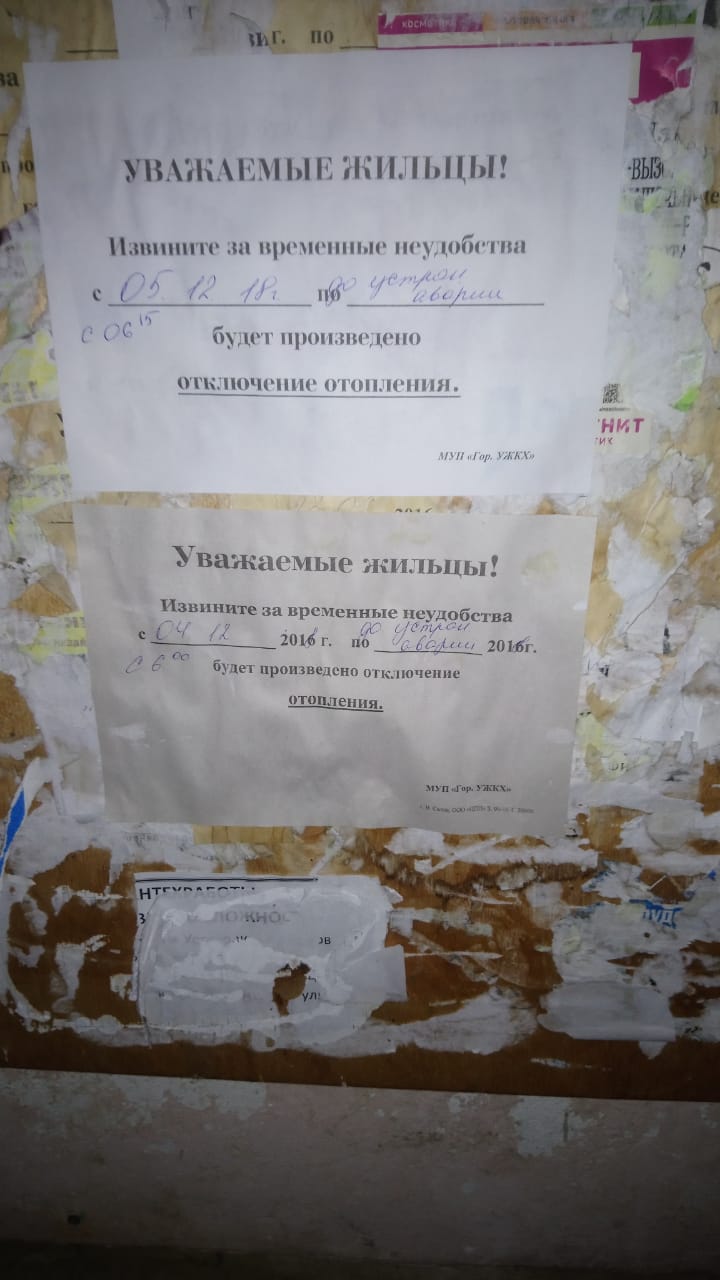 г. по
КОСМЕТИКА
УВАЖАЕМЫЕ ЖИЛЬЦЫ!
Извините за временные неудобства
с 05. 12 18г по до устрон аварии
С 06 15 будет произведено
отключение отопления.
МУП «Гор. УЖКХ»
-ВЫЗ
НИТ
2016
Уважаемые жильцы!
Извините за временные неудобства
с 04 12 2018 г. по до устрон аварии 2018г.
С 6 00 будет произведено отключение
отопления.
МУП «Гор. УЖКХ»
НТЕХРАБОТЫ
ЛОЖНОС
ов
ул